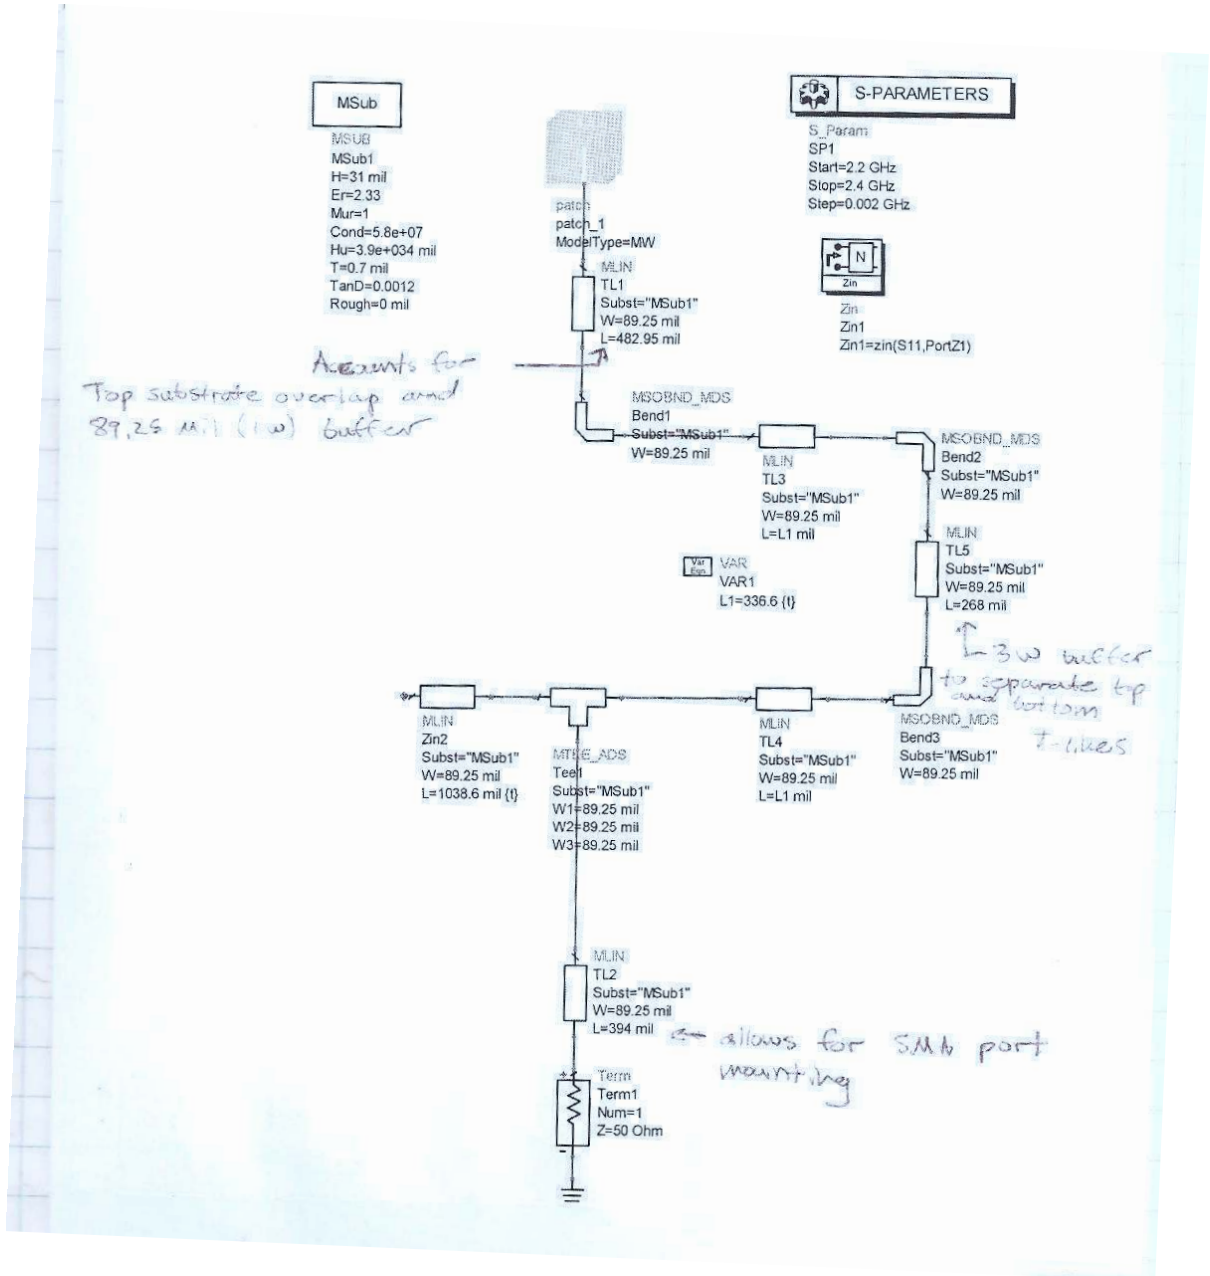 MSub
MSUB
MSub1
H=31 mil
Er=2.33
Mur=1
Cond=5.8e+07
Hu=3.9e+034 mil
T=0.7 mil
TanD=0.0012
Rough=0 mil
S-PARAMETERS
S_Param
SP1
Start=2.2 GHz
Stop=2.4 GHz
Step=0.002 GHz
patch
patch_1
ModelType=MW
N
Zin
Zin
Zin1
Zin1=zin(S11,PortZ1)
MLIN
TL1
Subst="MSub1"
W=89.25 mil
L=482.95 mil
Accounts for
Top substrate overlap and
89.25 mil (1w) buffer
MSOBND_MDS
Bend1
Subst="MSub1"
W=89.25 mil
MLIN
TL3
Subst="MSub1"
W=89.25 mil
L=L1 mil
MSOBND_MDS
Bend2
Subst="MSub1"
W=89.25 mil
MLIN
TL5
Subst="MSub1"
W=89.25 mil
L=268 mil
Var
Eqn
VAR
VAR1
L1=336.6 {t}
3w buffer
to separate top
and bottom
MLIN
Zin2
Subst="MSub1"
W=89.25 mil
L=1038.6 mil {t}
MTEE_ADS
Tee1
Subst="MSub1"
W1=89.25 mil
W2=89.25 mil
W3=89.25 mil
MLIN
TL4
Subst="MSub1"
W=89.25 mil
L=L1 mil
MSOBND_MDS
Bend3
Subst="MSub1"
W=89.25 mil
MLIN
TL2
Subst="MSub1"
W=89.25 mil
L=394 mil
allows for SMA port
mounting
Term
Term1
Num=1
Z=50 Ohm